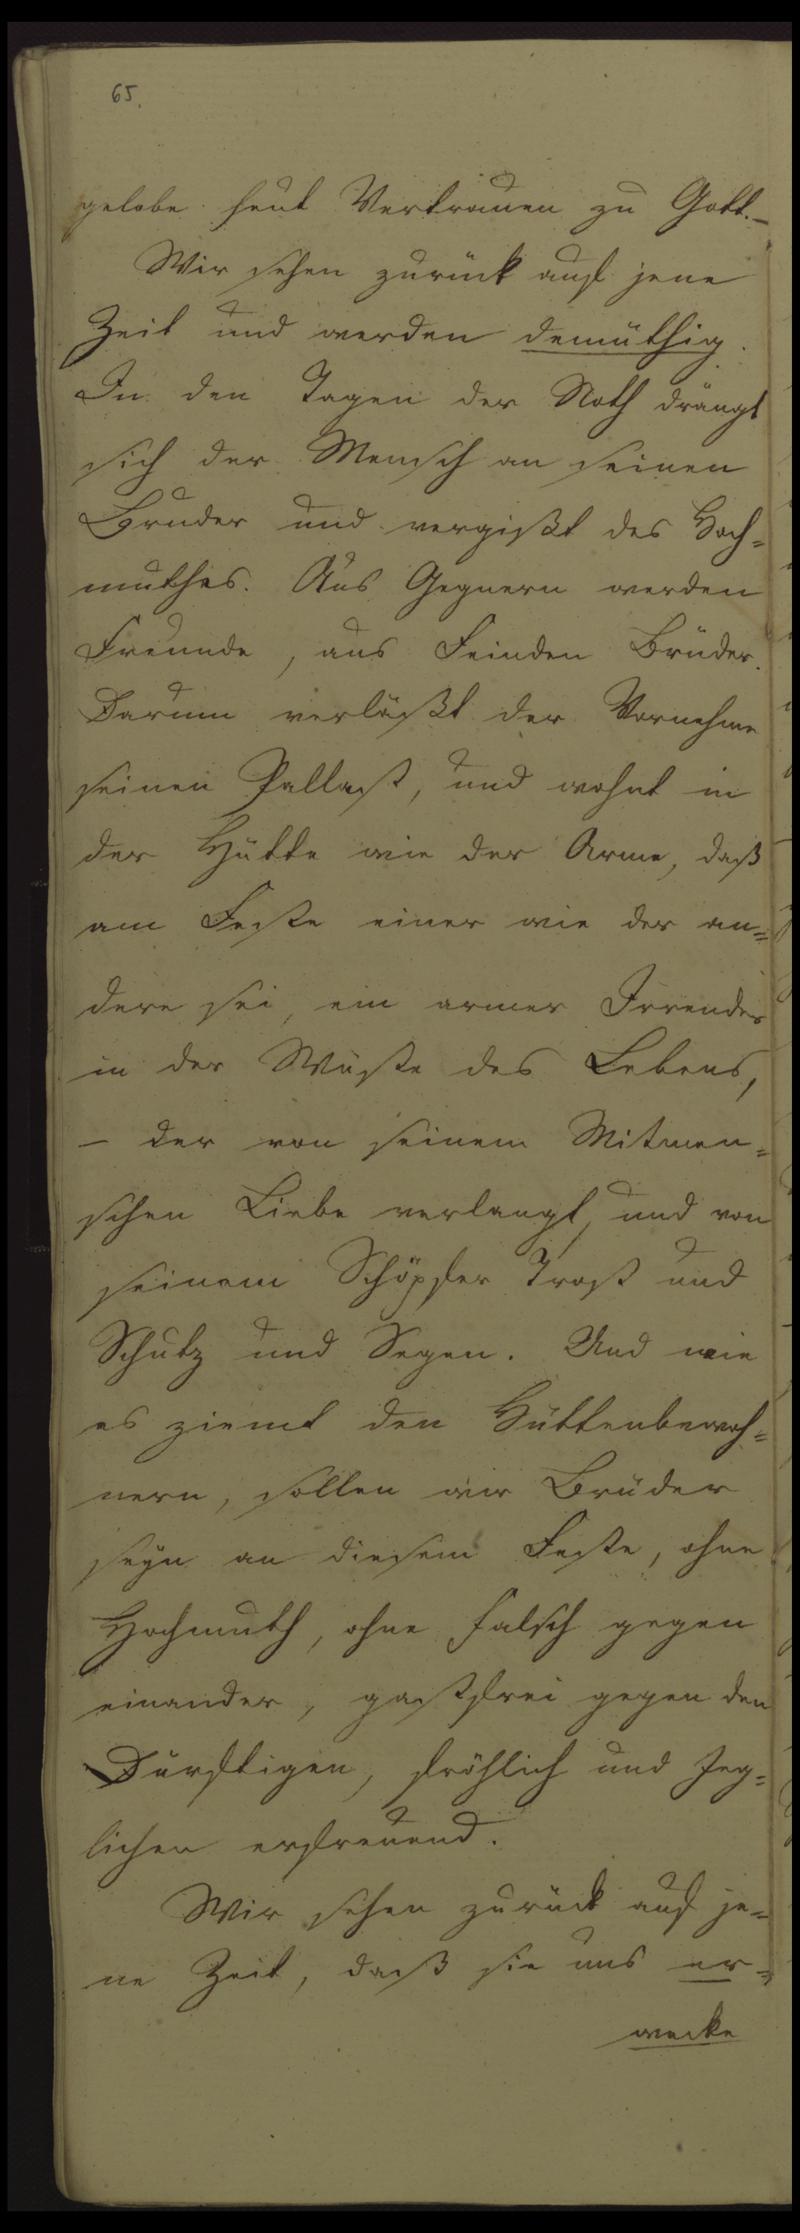 65.
gelobe heut Vertrauen zu Gott. –
Wir sehen zurück auf jene
Zeit und werden demüthig.
In den Tagen der Noth drängt
sich der Mensch an seinen
Bruder und vergißt des Hoch=
muthes. Aus Gegnern werden
Freunde, aus Feinden Brüder.
Darum verläßt der Vornehme
seinen Pallast, und wohnt in
der Hütte wie der Arme, daß
am Feste einer wie der an=
dere sei, ein armer Irrender
in der Wüste des Lebens,
– der von seinem Mitmen=
schen Liebe verlangt, und von
seinem Schöpfer Trost und
Schutz und Segen. Und wie
es ziemt den Hüttenbewoh=
nern, sollen wir Brüder
seyn an diesem Feste, ohne
Hochmuth, ohne Falsch gegen
einander, gastfrei gegen den
Dürftigen, fröhlich und Jeg=
lichen erfreuend.
Wir sehen zurück auf je=
ne Zeit, daß sie uns er=
wecke